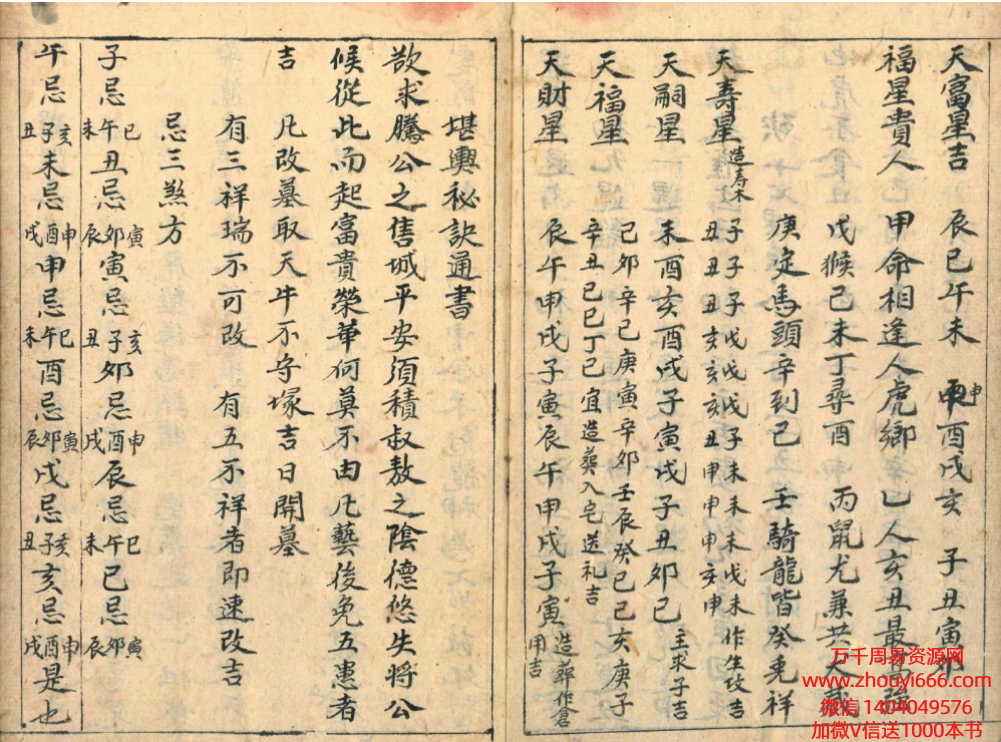 天富星吉 辰巳午未 申酉戌亥 子丑寅卯
福星貴人 甲命相逢人虎鄉 乙人亥丑最高強
戊猴己未丁尋酉 丙鼠尤兼共犬
庚定馬頭辛到己 壬騎龍皆癸兎祥
天壽星 造寿木 子子子戊戌戌子未未未戊未作生坟吉
丑丑丑亥亥亥丑申申申亥申
天嗣星 未酉亥酉戌子寅戌子丑卯巳 主求子吉
天福星 己卯辛巳庚寅辛卯壬辰癸巳己亥庚子
辛丑乙巳丁巳宜造葬入宅送礼吉
天財星 辰午申戌子寅辰午申戌子寅 造葬作倉用吉
堪輿秘訣通書
欲求騰公之售城平安須積叔敖之陰德悠失將公
候從此而起富貴榮華何莫不由凡藝後免五患者
吉 凡改墓取天牛不守塚吉日開墓
有三祥瑞不可改 有五不祥者即速改吉
忌三煞方
子忌巳午未丑忌寅卯辰寅忌亥子丑卯忌申酉戌辰忌巳午未巳忌寅卯辰
午忌亥子丑未忌申酉戌申忌巳午未酉忌寅卯辰戌忌亥子丑亥忌申酉戌是也
万千周易资源网
www.zhouyi666.com
微信1404049576
加微V信送1000本书